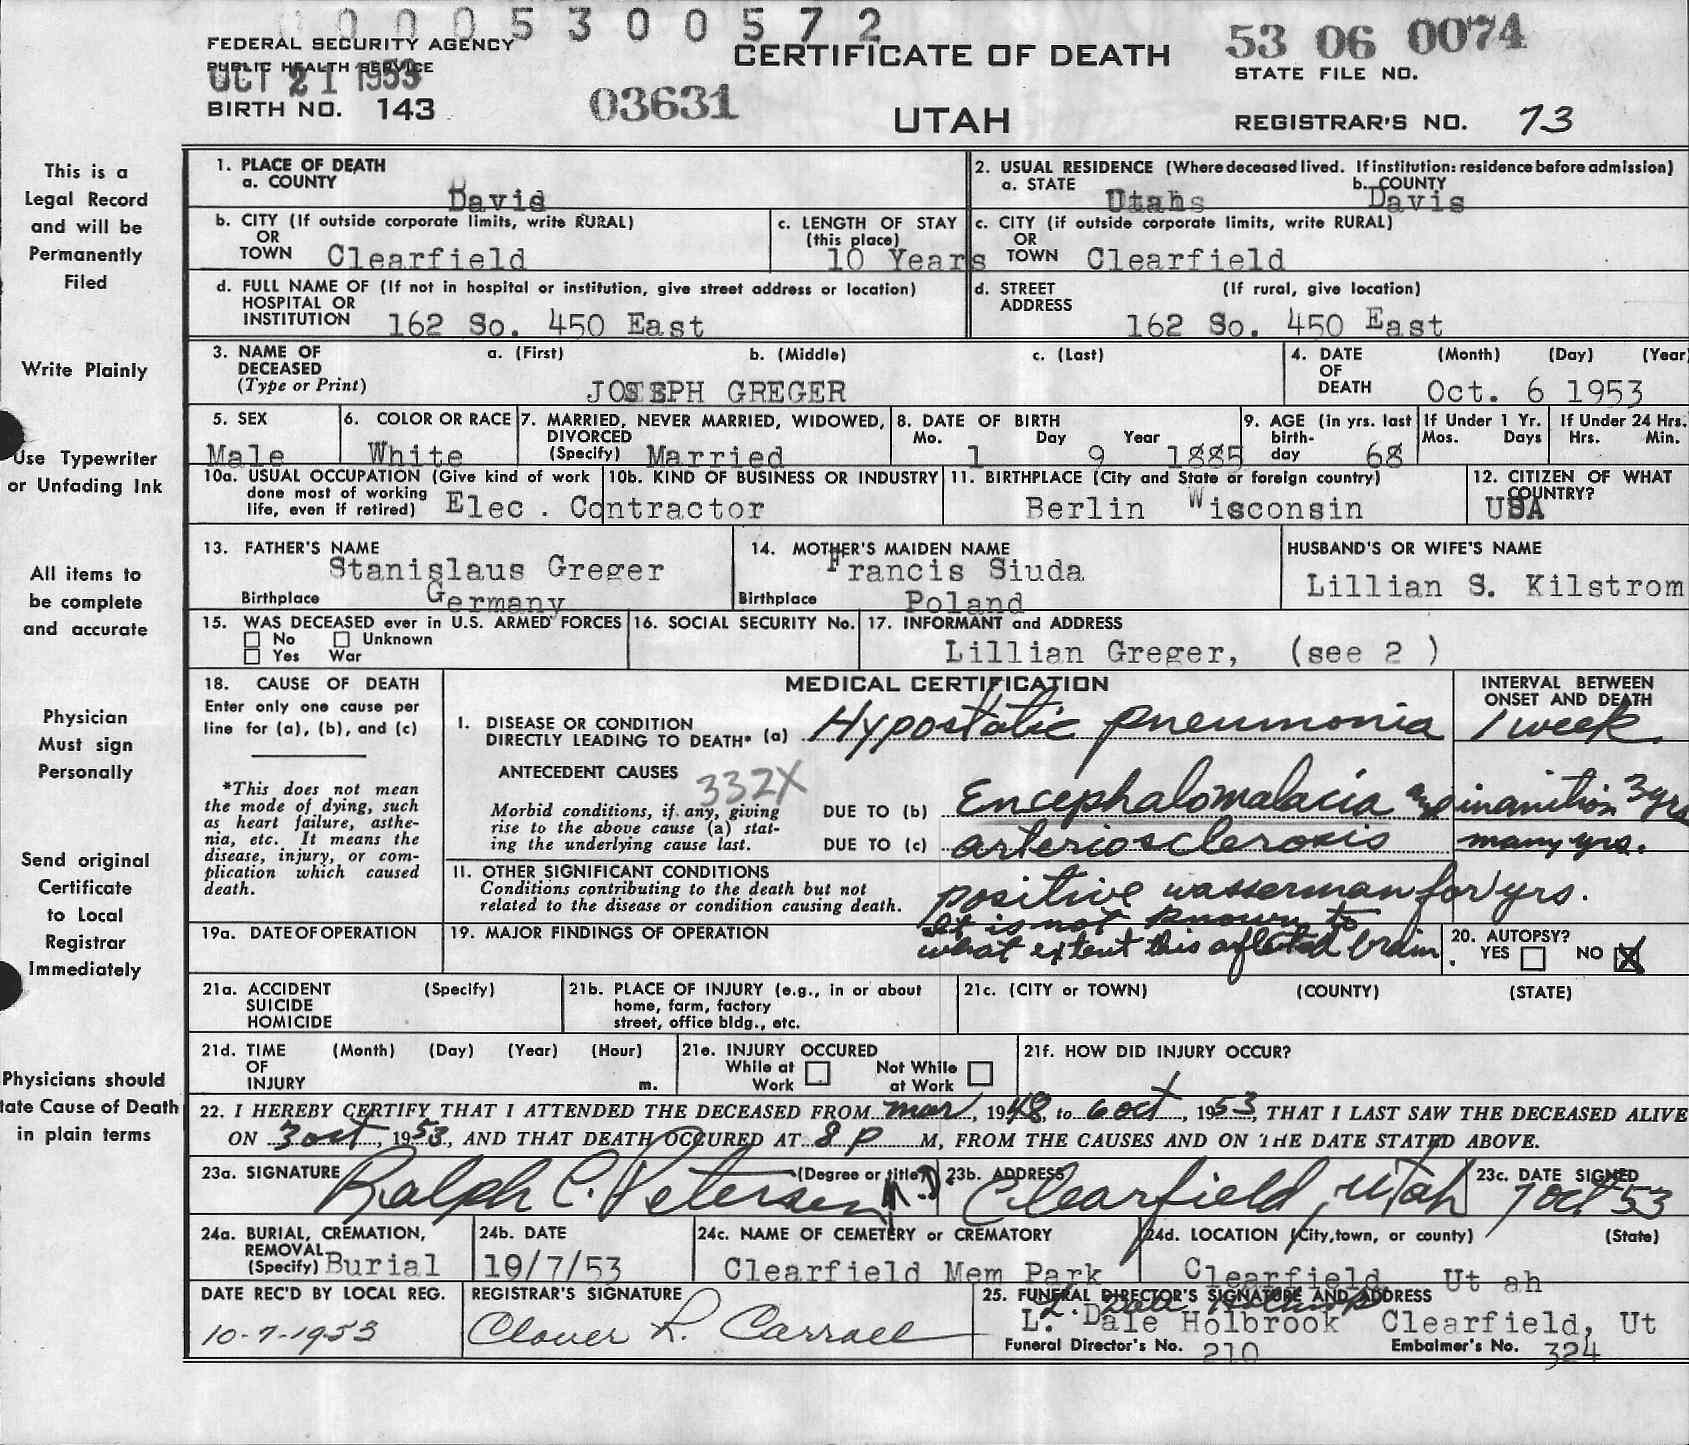 00005300572
FEDERAL SECURITY AGENCY
PUBLIC HEALTH SERVICE
OCT 21 1953
BIRTH NO. 143
03631
CERTIFICATE OF DEATH
UTAH
53 06 0074
STATE FILE NO.
REGISTRAR'S NO. 73
This is a
Legal Record
and will be
Permanently
Filed
Write Plainly
Use Typewriter
or Unfading Ink
All items to
be complete
and accurate
Physician
Must sign
Personally
Send original
Certificate
to Local
Registrar
Immediately
Physicians should
tate Cause of Death
in plain terms
1. PLACE OF DEATH
a. COUNTY Davis
2. USUAL RESIDENCE (Where deceased lived. If institution: residence before admission)
a. STATE Utahs b. COUNTY Davis
b. CITY (If outside corporate limits, write RURAL)
OR
TOWN Clearfield
c. LENGTH OF STAY
(this place)
10 Years
c. CITY (if outside corporate limits, write RURAL)
OR
TOWN Clearfield
d. FULL NAME OF (If not in hospital or institution, give street address or location)
HOSPITAL OR
INSTITUTION 162 So. 450 East
d. STREET (If rural, give location)
ADDRESS
162 So. 450 East
3. NAME OF a. (First) b. (Middle) c. (Last)
DECEASED
(Type or Print) JOSEPH GREGER
4. DATE (Month) (Day) (Year)
OF
DEATH Oct. 6 1953
5. SEX
Male
6. COLOR OR RACE
White
7. MARRIED, NEVER MARRIED, WIDOWED,
DIVORCED
(Specify) Married
8. DATE OF BIRTH
Mo. Day Year
1 9 1885
9. AGE (in yrs. last
birth-
day 68
If Under 1 Yr.
Mos. Days
If Under 24 Hrs.
Hrs. Min.
10a. USUAL OCCUPATION (Give kind of work
done most of working
life, even if retired) Elec. Contractor
10b. KIND OF BUSINESS OR INDUSTRY
11. BIRTHPLACE (City and State or foreign country)
Berlin Wisconsin
12. CITIZEN OF WHAT
COUNTRY?
USA
13. FATHER'S NAME
Stanislaus Greger
Birthplace Germany
14. MOTHER'S MAIDEN NAME
Francis Siuda
Birthplace Poland
HUSBAND'S OR WIFE'S NAME
Lillian S. Kilstrom
15. WAS DECEASED ever in U.S. ARMED FORCES
No Unknown
Yes War
16. SOCIAL SECURITY No.
17. INFORMANT and ADDRESS
Lillian Greger, (see 2 )
18. CAUSE OF DEATH
Enter only one cause per
line for (a), (b), and (c)
*This does not mean
the mode of dying, such
as heart failure, asthe-
nia, etc. It means the
disease, injury, or com-
plication which caused
death.
MEDICAL CERTIFICATION
INTERVAL BETWEEN
ONSET AND DEATH
I. DISEASE OR CONDITION
DIRECTLY LEADING TO DEATH* (a) Hypostatic pneumonia 1 week.
ANTECEDENT CAUSES 332X
Morbid conditions, if any, giving
rise to the above cause (a) stat-
ing the underlying cause last.
DUE TO (b) Encephalomalacia and inanition 3 yrs
DUE TO (c) arteriosclerosis many yrs.
11. OTHER SIGNIFICANT CONDITIONS
Conditions contributing to the death but not
related to the disease or condition causing death.
positive wasserman for yrs.
It is not known to
what extent this affected brain
19a. DATE OF OPERATION
19. MAJOR FINDINGS OF OPERATION
20. AUTOPSY?
YES NO X
21a. ACCIDENT (Specify)
SUICIDE
HOMICIDE
21b. PLACE OF INJURY (e.g., in or about
home, farm, factory
street, office bldg., etc.
21c. (CITY or TOWN) (COUNTY) (STATE)
21d. TIME (Month) (Day) (Year) (Hour)
OF
INJURY m.
21e. INJURY OCCURED
While at Work Not While at Work
21f. HOW DID INJURY OCCUR?
22. I HEREBY CERTIFY THAT I ATTENDED THE DECEASED FROM mar, 1948, to 6 oct, 1953, THAT I LAST SAW THE DECEASED ALIVE
ON 3 oct, 1953, AND THAT DEATH OCCURED AT 8 p M, FROM THE CAUSES AND ON THE DATE STATED ABOVE.
23a. SIGNATURE Ralph C. Petersen (Degree or title) M.D
23b. ADDRESS Clearfield, Utah
23c. DATE SIGNED
7 oct 53
24a. BURIAL, CREMATION,
REMOVAL
(Specify) Burial
24b. DATE
10/7/53
24c. NAME OF CEMETERY or CREMATORY
Clearfield Mem Park
24d. LOCATION (City, town, or county) (State)
Clearfield Ut ah
DATE REC'D BY LOCAL REG.
10-7-1953
REGISTRAR'S SIGNATURE
Clover R. Carroll
25. FUNERAL DIRECTOR'S SIGNATURE AND ADDRESS
L. Dale Holbrook
L. Dale Holbrook Clearfield, Ut
Funeral Director's No. 210 Embalmer's No. 324